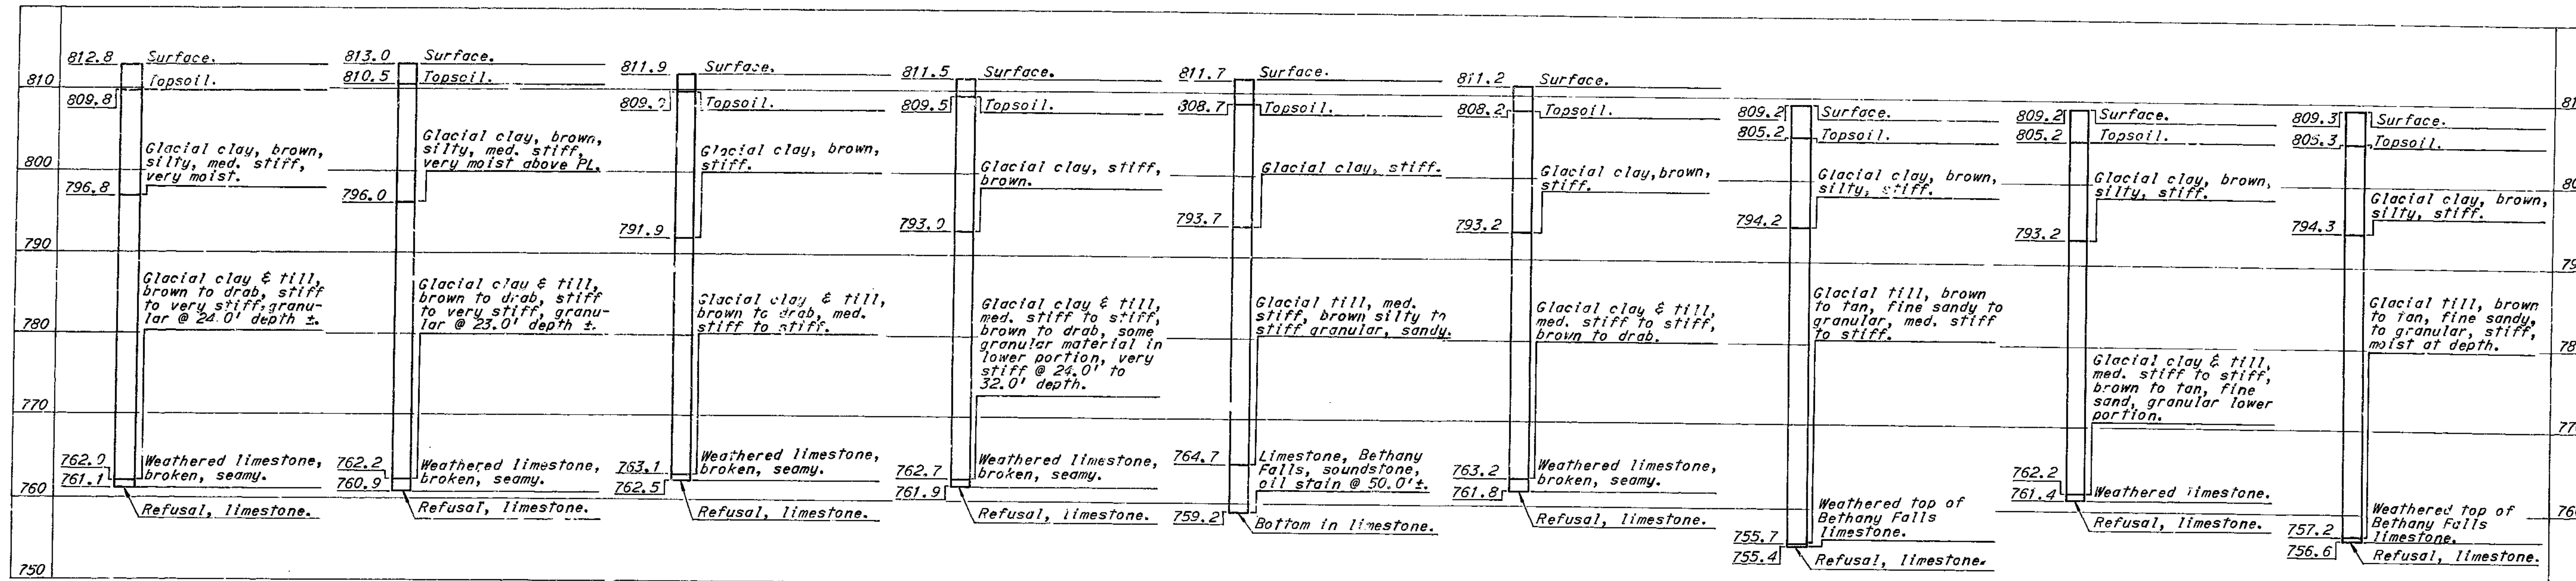 810
800
790
780
770
760
750
812.8
Surface.
Topsoil.
809.8
Glacial clay, brown,
silty, med. stiff,
very moist.
796.8
Glacial clay & till,
brown to drab, stiff
to very stiff, granu-
lar @ 24.0' depth ±.
Weathered limestone,
broken, seamy.
761.1
Refusal, limestone.
813.0
Surface.
810.5
Topsoil.
Glacial clay, brown,
silty, med. stiff,
very moist above PL.
796.0
Glacial clay & till,
brown to drab, stiff
to very stiff, granu-
lar @ 23.0' depth ±.
762.2
Weathered limestone,
broken, seamy.
760.9
Refusal, limestone.
811.9
Surface.
Topsoil.
Glacial clay, brown,
stiff.
791.9
Glacial clay & till,
brown to drab, med.
stiff to stiff.
763.1
Weathered limestone,
broken, seamy.
762.5
Refusal, limestone.
811.5
Surface.
809.5
Topsoil.
Glacial clay, stiff,
brown.
793.0
Glacial clay & till,
med. stiff to stiff,
brown to drab, some
granular material in
lower portion, very
stiff @ 24.0' to
32.0' depth.
762.7
Weathered limestone,
broken, seamy.
761.9
Refusal, limestone.
811.7
Surface.
808.7
Topsoil.
Glacial clay, stiff.
793.7
Glacial till, med.
stiff, brown silty to
stiff granular, sandy.
764.7
Limestone, Bethany
Falls, soundstone,
oil stain @ 50.0'±.
759.2
Bottom in limestone.
811.2
Surface.
808.2
Topsoil.
Glacial clay, brown,
stiff.
793.2
Glacial clay & till,
med. stiff to stiff,
brown to drab.
763.2
Weathered limestone,
broken, seamy.
761.8
Refusal, limestone.
809.2
Surface.
805.2
Topsoil.
Glacial clay, brown,
silty, stiff.
794.2
Glacial till, brown
to tan, fine sandy to
granular, med. stiff
to stiff.
Weathered top of
Bethany Falls
limestone.
755.7
755.4
Refusal, limestone.
809.2
Surface.
805.2
Topsoil.
Glacial clay, brown,
silty, stiff.
793.2
Glacial clay & till,
med. stiff to stiff,
brown to tan, fine
sand, granular lower
portion.
762.2
761.4
Weathered limestone.
Refusal, limestone.
809.3
Surface.
805.3
Topsoil.
Glacial clay, brown,
silty, stiff.
794.3
Glacial till, brown
to tan, fine sandy,
to granular, stiff,
moist at depth.
Weathered top of
Bethany Falls
limestone.
757.2
756.6
Refusal, limestone.